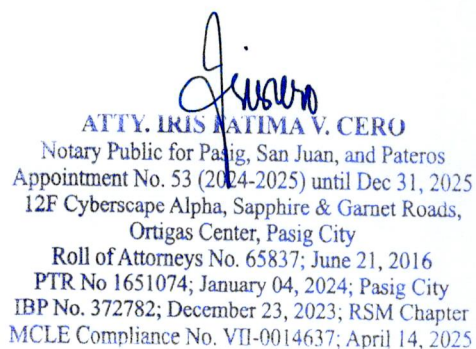 ATTY. IRIS FATIMA V. CERO
Notary Public for Pasig, San Juan, and Pateros
Appointment No. 53 (2024-2025) until Dec 31, 2025
12F Cyberscape Alpha, Sapphire & Garnet Roads,
Ortigas Center, Pasig City
Roll of Attorneys No. 65837; June 21, 2016
PTR No 1651074; January 04, 2024; Pasig City
IBP No. 372782; December 23, 2023; RSM Chapter
MCLE Compliance No. VII-0014637; April 14, 2025